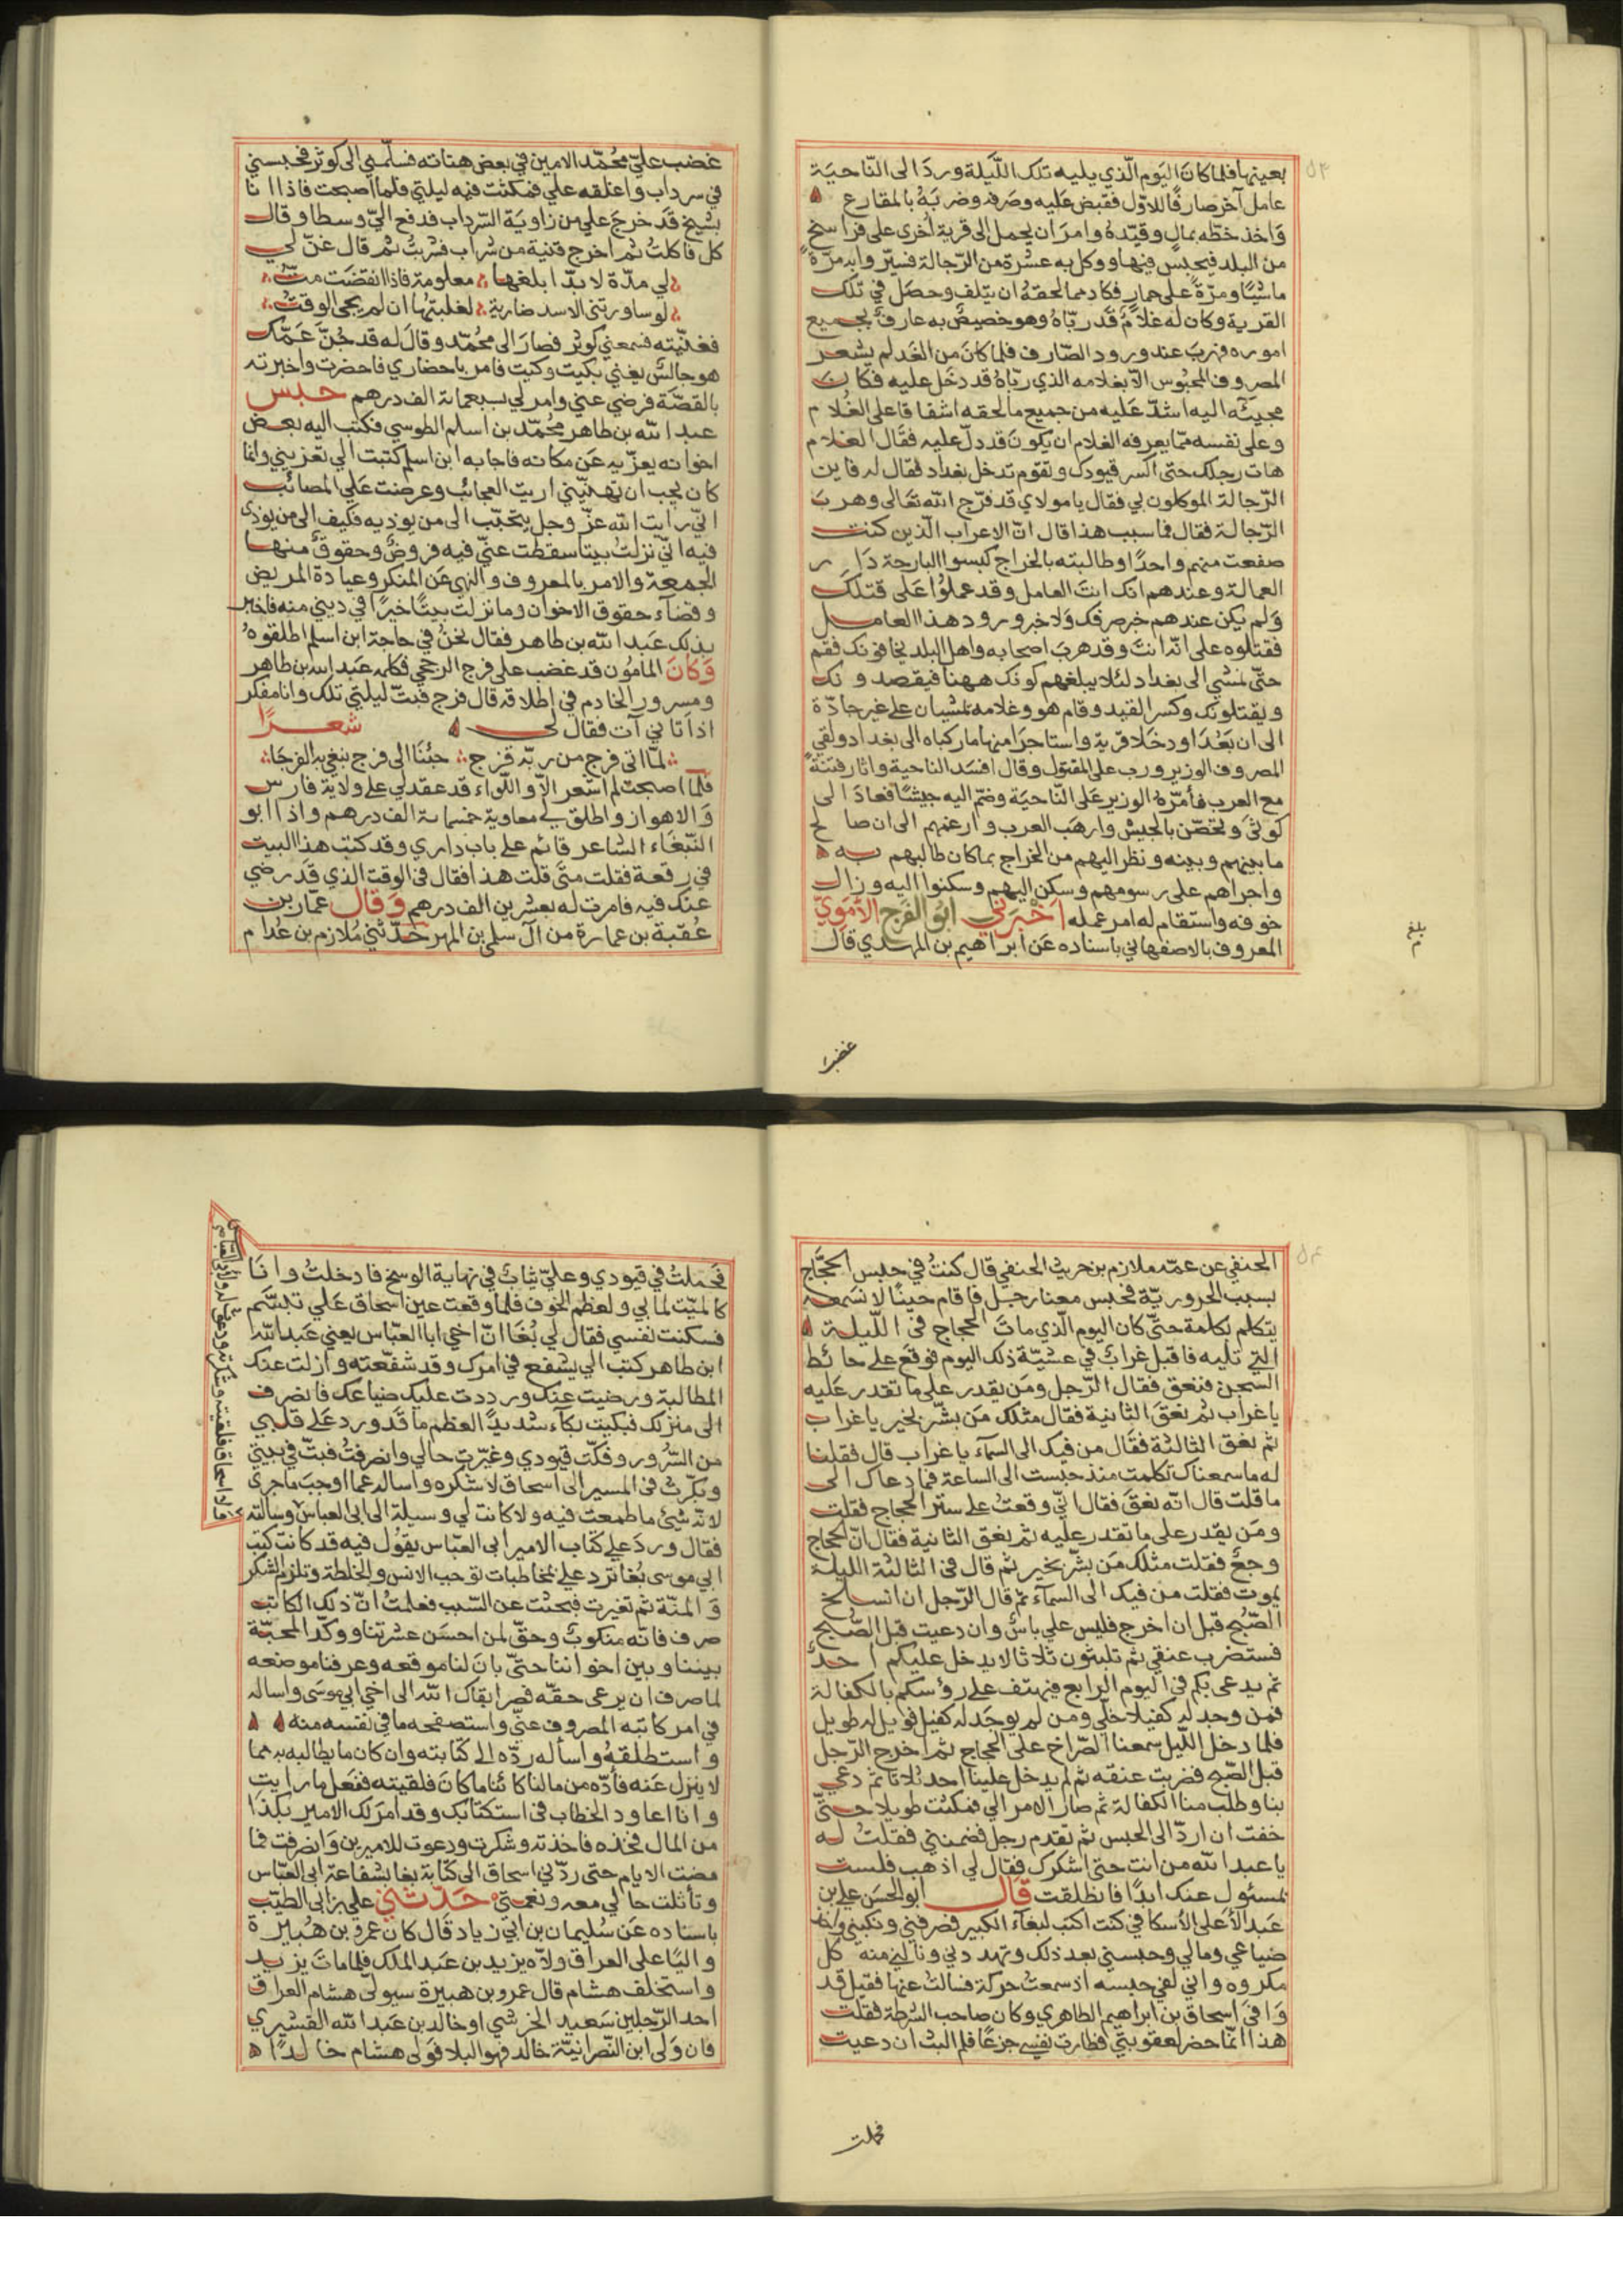 ٥٣
بعينها فلما كان اليوم الذي يليه تلك الليلة ورد الى الناحية
عامل آخر صارفا للاول فقبض عليه وصرفه وضربه بالمقارع
واخذ خطه بمال وقيده وامر ان يحمل الى قرية اخرى على فراسخ
من البلد فيحبس فيها ووكل به عشرة من الرجالة فسير وا به مرة
ماشيا ومرة على حمار فكاد مما لحقه ان يتلف وحصل في تلك
القرية وكان له غلام قد رباه وهو خصيص به عارف بجميع
اموره فهرب عند ورود الصارف فلما كان من الغد لم يشعر
المصروف المحبوس الا بغلامه الذي رباه قد دخل عليه فكان
مجيئه اليه اشد عليه من جميع ما لحقه اشفاقا على الغلام
وعلى نفسه مما يعرفه الغلام ان يكون قد دل عليه فقال الغلام
هات رجلك حتى اكسر قيودك وتقوم تدخل بغداد فقال له فاين
الرجالة الموكلون بي فقال يا مولاي قد فرج الله تعالى وهرب
الرجالة فقال فما سبب هذا قال ان الاعراب الذين كنت
صفعت منهم واحدا وطالبته بالخراج كبسوا البارحة دار
العمالة وعندهم انك انت العامل وقد عملوا على قتلك
ولم يكن عندهم خبر صرفك ولا خبر ورود هذا العامل
فقتلوه على انه انت وقد هرب اصحابه واهل البلد يخافونك فقم
حتى نمشي الى بغداد لئلا يبلغهم كونك ههنا فيقصدونك
ويقتلونك وكسر القيد وقام هو وغلامه يمشيان على غير جادة
الى ان بعدا ودخلا قرية واستاجرا منها ما ركباه الى بغداد ولقي
المصروف الوزير ورب على المقتول وقال افسد الناحية واثار فتنة
مع العرب فأمره الوزير على الناحية وضم اليه جيشا فعاد الى
كوثى وتحصن بالجيش وارهب العرب وارعبهم الى ان صالح
ما بينهم وبينه ونظر اليهم من الخراج بما كان طالبهم به
واجراهم على رسومهم وسكن اليهم وسكنوا اليه وزال
خوفه واستقام له امر عمله اخبرني ابو الفرج الاموي
المعروف بالاصفهاني باسناده عن ابراهيم بن المهدي قال
بلغ
غضب
غضب علي محمد الامين في بعض هناته فسلمني الى كوثر فحبسني
في سرداب واغلقه علي فمكثت فيه ليلتي فلما اصبحت فاذا انا
بشيخ قد خرج علي من زاوية السرداب فدفع الي وسطا وقال
كل فاكلت ثم اخرج قنينة من شراب فشربت ثم قال غن لي
لي مدة لا بد ابلغها معلومة فاذا انقضت مت
لو ساورتني الاسد ضارية لغلبتها ان لم يجئ الوقت
فغنيته فسمعني كوثر فصار الى محمد وقال له قد جن عمك
هو جالس يغني بكيت وكيت فامر باحضاري فاحضرت واخبرته
بالقصة فرضي عني وامر لي بسبعمائة الف درهم حبس
عبد الله بن طاهر محمد بن اسلم الطوسي فكتب اليه بعض
اخوانه يعزيه عن مكانه فاجابه ابن اسلم كتبت الي تعزيني وانما
كان يجب ان تهنيني اريت العجائب وعرضت علي المصائب
اني رايت الله عز وجل يتحبب الى من يوذيه فكيف الى من يوذى
فيه اني نزلت بيتا سقطت عني فيه فروض وحقوق منها
الجمعة والامر بالمعروف والنهي عن المنكر وعيادة المريض
وقضاء حقوق الاخوان وما نزلت بيتا خيرا في ديني منه فاخبر
بذلك عبد الله بن طاهر فقال نحن في حاجة ابن اسلم اطلقوه
وكان المامون قد غضب على فرج الرخجي فكلمه عبد الله بن طاهر
ومسرور الخادم في اطلاقه قال فرج فبت ليلتي تلك وانا مفكر
اذ اتاني آت فقال لي شعرا
لما اتى فرج من ربه فرج جئنا الى فرج نبغي به الفرجا
فلما اصبحت لم اشعر الا واللواء قد عقد لي على ولاية فارس
والاهواز واطلق لي معاوية خمسمائة الف درهم واذا ابو
الببغاء الشاعر قائم على باب داري وقد كتب هذا البيت
في رقعة فقلت متى قلت هذا فقال في الوقت الذي قد رضي
عنك فيه فامرت له بعشرين الف درهم وقال عمار بن
عقبة بن عمارة من آل سلمى بن المهر حدثني ملازم بن عدام
٥٤
الحنفي عن عمه ملازم بن حريث الحنفي قال كنت في حبس الحجاج
بسبب الحرورية فحبس معنا رجل فاقام حينا لا نسمعه
يتكلم بكلمة حتى كان اليوم الذي مات الحجاج في الليلة
التي تليه فاقبل غراب في عشية ذلك اليوم فوقع على حائط
السجن فنعق فقال الرجل ومن يقدر على ما تقدر عليه
يا غراب ثم نعق الثانية فقال مثلك من بشر بخير يا غراب
ثم نعق الثالثة فقال من فيك الى السماء يا غراب قال فقلنا
له ما سمعناك تكلمت منذ حبست الى الساعة فما دعاك الى
ما قلت قال انه نعق فقال اني وقعت على ستر الحجاج فقلت
ومن يقدر على ما تقدر عليه ثم نعق الثانية فقال ان الحجاج
وجع فقلت مثلك من بشر بخير ثم قال في الثالثة الليلة
يموت فقلت من فيك الى السماء ثم قال الرجل ان انسلخ
الصبح قبل ان اخرج فليس علي باس وان دعيت قبل الصبح
فستضرب عنقي ثم تلبثون ثلاثا لا يدخل عليكم احد
ثم يدعى بكم في اليوم الرابع فيهتف على رؤسكم بالكفالة
فمن وجد له كفيلا خلي ومن لم يوجد له كفيل فويل له طويل
فلما دخل الليل سمعنا الصراخ على الحجاج ثم اخرج الرجل
قبل الصبح فضربت عنقه ثم لم يدخل علينا احد ثلاثا ثم دعي
بنا وطلب منا الكفالة ثم صار الامر الي فمكثت طويلا حتى
خفت ان ارد الى الحبس ثم تقدم رجل فضمنني فقلت له
يا عبد الله من انت حتى اشكرك فقال لي اذهب فلست
بمسئول عنك ابدا فانطلقت قال ابو الحسن علي بن
عبد الأعلى الأسكافي كنت اكتب لبغاء الكبير فصرفني ونكبني واخذ
ضياعي ومالي وحبسني بعد ذلك وتهددني ونالني منه كل
مكروه واني لفي حبسه اذ سمعت حركة فسالت عنها فقيل قد
وافى اسحاق بن ابراهيم الطاهري وكان صاحب الشرطة فقلت
هذا انما حضر لعقوبتي فطارت نفسي جزعا فلم البث ان دعيت
فحملت
فحملت في قيودي وعلي ثياب في نهاية الوسخ فادخلت وانا
كالميت لما بي ولعظم الخوف فلما وقعت عين اسحاق علي تبسم
فسكنت نفسي فقال لي بغا ان اخي ابا العباس يعني عبد الله
ابن طاهر كتب الي يشفع في امرك وقد شفعته وازلت عنك
المطالبة ورضيت عنك ورددت عليك ضياعك فانصرف
الى منزلك فبكيت بكاء شديدا لعظم ما قد ورد على قلبي
من السرور وفكت قيودي وغيرت حالي وانصرفت فبت في بيتي
وبكرت في المسير الى اسحاق لاشكره واساله عما اوجب ما جرى
لانه شئ ما طمعت فيه ولا كانت لي وسيلة الى ابى العباس وسالته
فقال ورد علي كتاب الامير ابى العباس يقول فيه قد كانت كتب
ابي موسى بغا ترد علي بمخاطبات توجب الانس والخلطة وتلزم الشكر
والمنة ثم تغيرت فبحثت عن السبب فعلمت ان ذلك الكاتب
صرف فانه منكوب وحق لمن احسن عشرتنا ووكد المحبة
بيننا وبين اخواننا حتى بان لنا موقعه وعرفنا موضعه
لما صرف ان يرعى حقه فصر ابقاك الله الى اخي ابي موسى واساله
في امر كاتبه المصروف عني واستصفحه ما في نفسه منه
واستطلقه واساله رده الى كتابته وان كان ما يطالبه به مما
لا ينزل عنه فأده من مالنا كائنا ما كان فلقيته ففعل ما رايت
وانا اعاود الخطاب في استكتابك وقد امر لك الامير بكذا
من المال فخذه فاخذته وشكرت ودعوت للاميرين وانصرفت فما
مضت الايام حتى ردني اسحاق الى كتابة بغا بشفاعة ابى العباس
وتأثلت حالي معه ونعمتي حدثني علي بن ابى الطيب
باسناده عن سليمان بن ابي زياد قال كان عمرو بن هبيرة
واليا على العراق ولاه يزيد بن عبد الملك فلما مات يزيد
واستخلف هشام قال عمرو بن هبيرة سيولى هشام العراق
احد الرجلين سعيد الخرشي او خالد بن عبد الله القشيري
فان ولى ابن النصرانية خالد فهو البلا فولى هشام خالدا